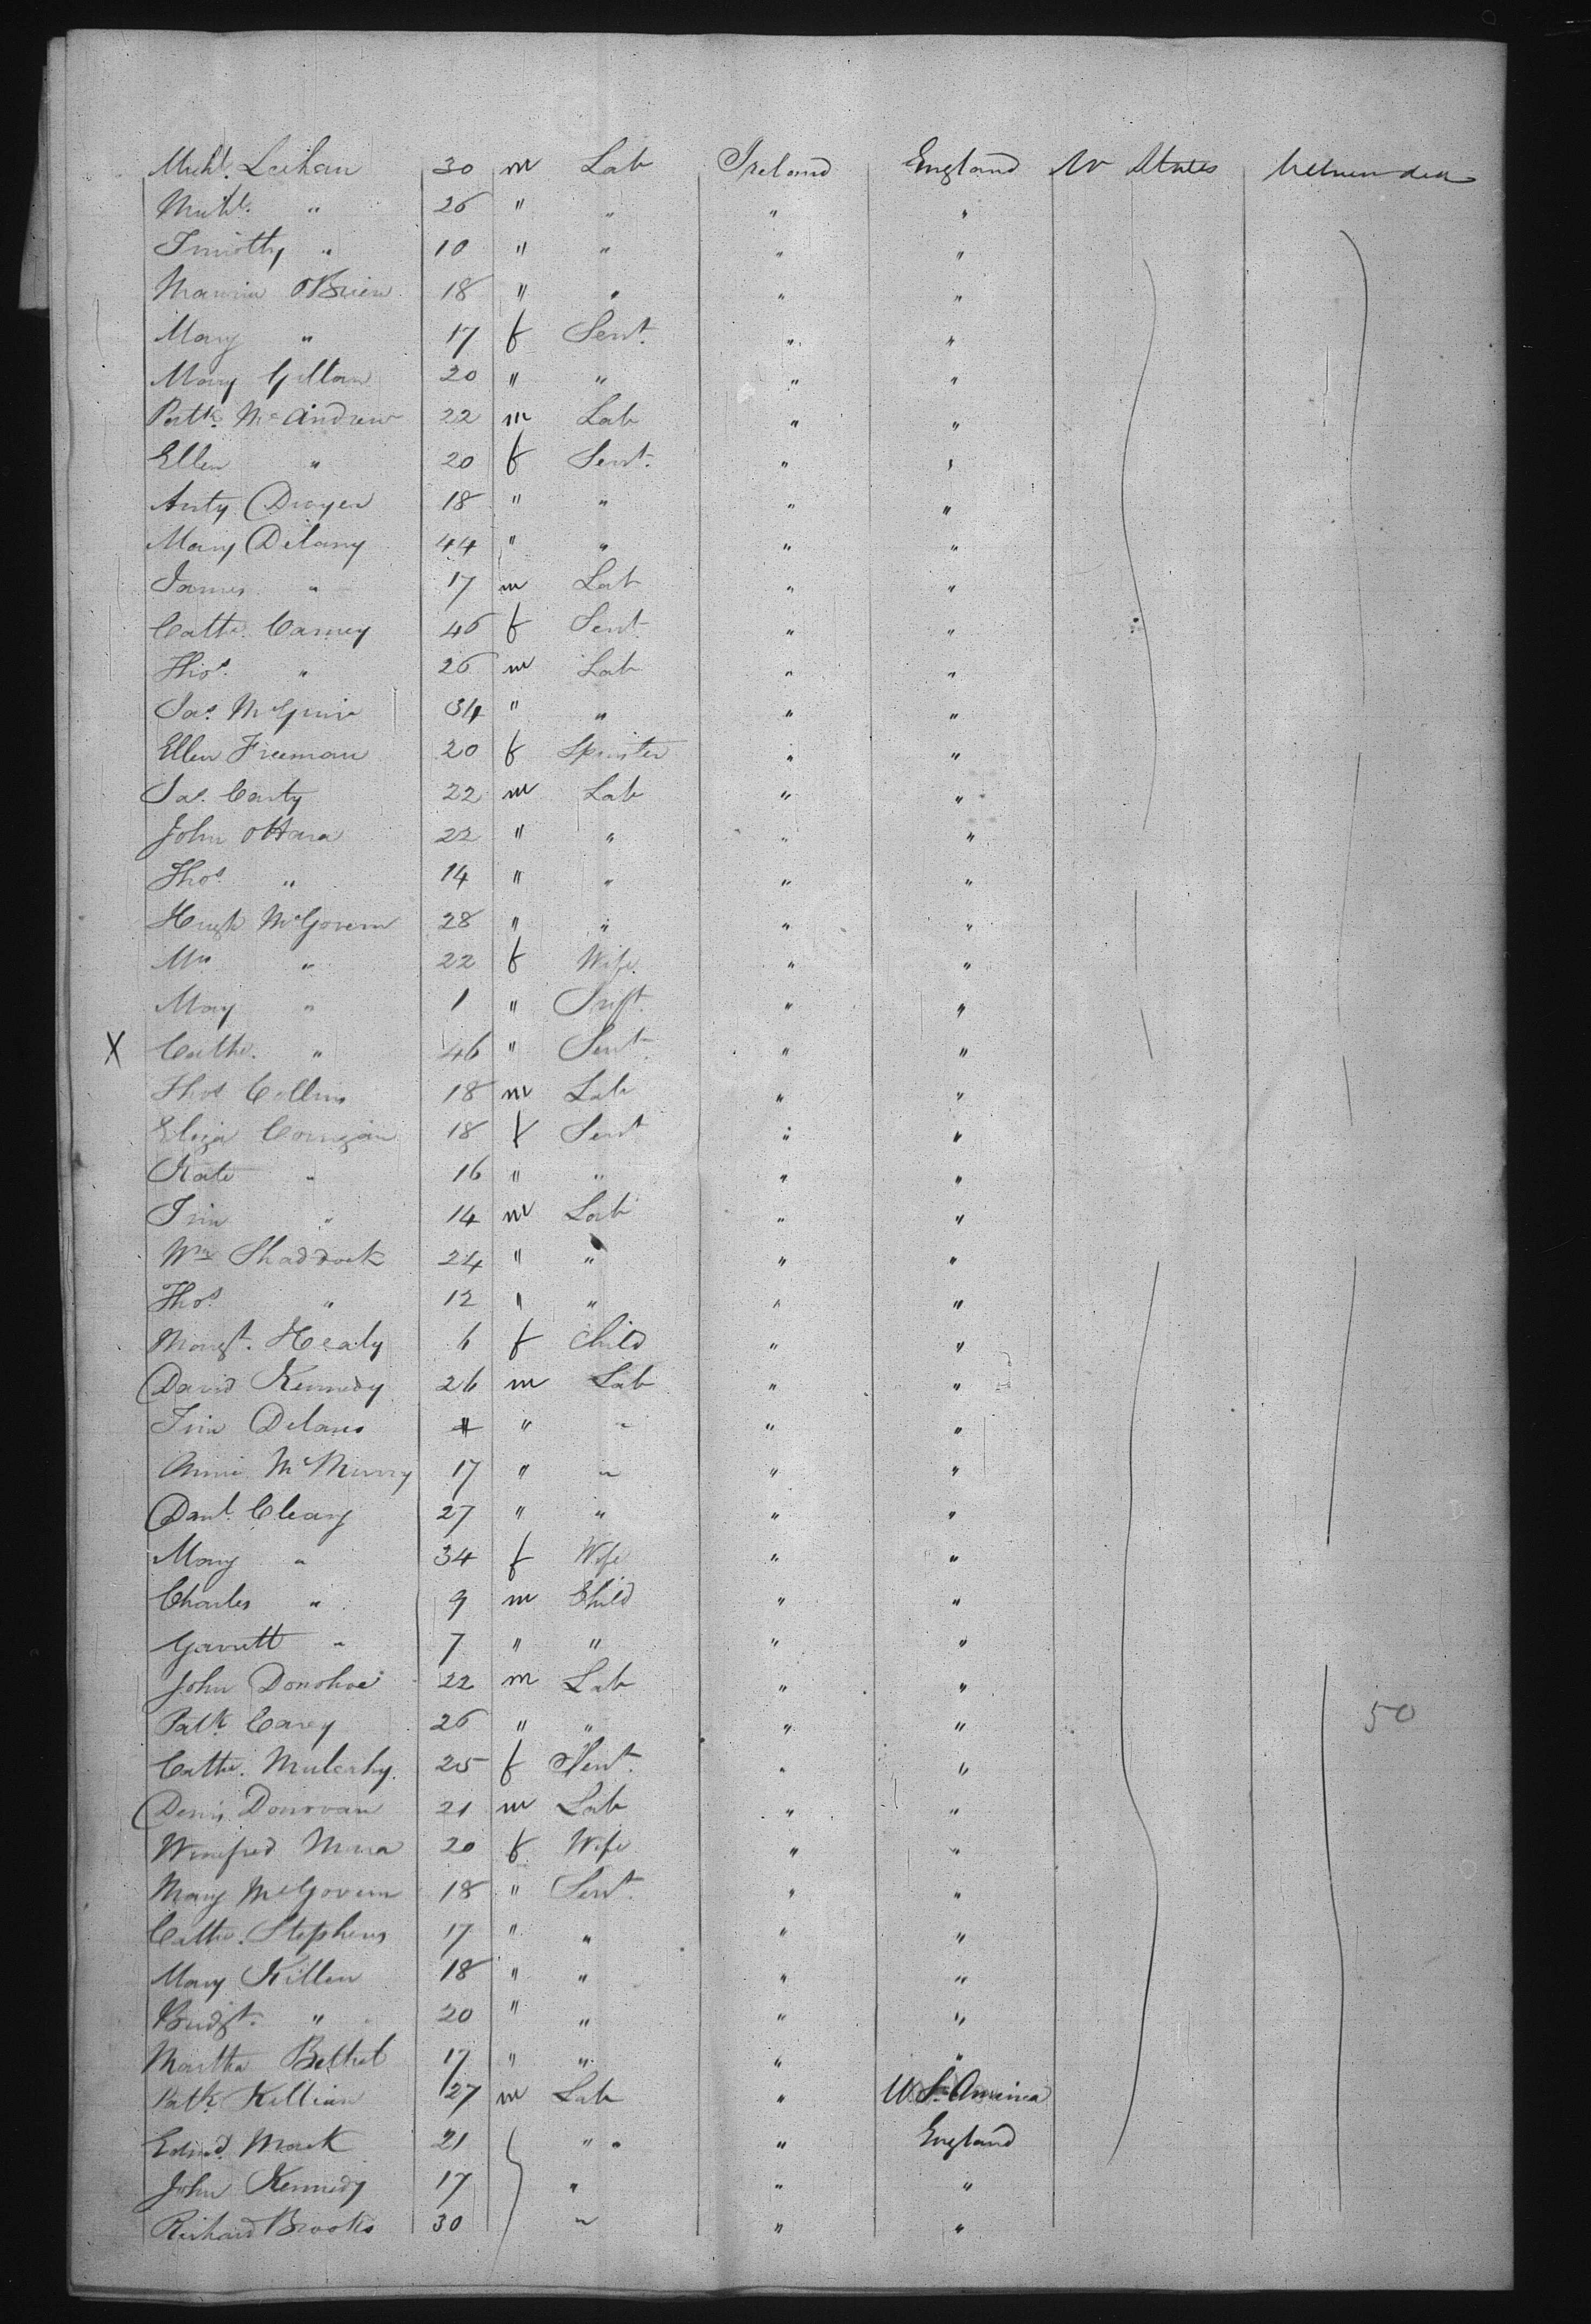 Michl. Leehan 30 m Lab Ireland England U States Between dea
Michl. " 26 " " " "
Timothy " 10 " " " "
Maurice OBrien 18 " " " "
Mary " 17 f Servt. " "
Mary Gillan 20 " " " "
Patk. McAndrew 22 m Lab " "
Ellen " 20 f Servt. " "
Anty Dwyer 18 " " " "
Mary Delany 44 " " " "
James " 17 m Lab " "
Cathe. Carney 46 f Servt. " "
Thos. " 26 m Lab " "
Jas. McGuire 34 " " " "
Ellen Freeman 20 f Spinster " "
Jas. Carty 22 m Lab " "
John OHara 22 " " " "
Thos. " 14 " " " "
Hugh McGovern 28 " " " "
Mrs " 22 f Wife " "
Mary " 1 " Inft. " "
X Cathe. " 46 " Servt. " "
Thos Collins 18 m Lab " "
Eliza Corrigan 18 f Servt " "
Kate " 16 " " " "
Tim " 14 m Lab " "
Wm Shaddock 24 " " " "
Thos. " 12 " " " "
Margt. Healy 6 f Child " "
David Kennedy 26 m Lab " "
Tim " " " "
Annie McMurry 17 " " " "
Danl. Cleary 27 " " " "
Mary " 34 f Wife " "
Charles " 9 m Child " "
Garrett " 7 " " " "
John Donohoe 22 m Lab " "
Patk Carey 26 " " " " 50
Cathe. Mulcahy. 25 f Servt. " "
Denis Donovan 21 m Lab " "
Winefred 20 f Wife " "
Mary McGovern 18 " Servt. " "
Cathe. Stephens 17 " " " "
Mary Killen 18 " " " "
Bridgt. " 20 " " " "
Martha Bethel 17 " " " "
Patk Killian 27 m Lab " U.S. America
Edmd. Mack 21 " " " England
John Kennedy 17 " " "
Richard Brooks 30 " " "